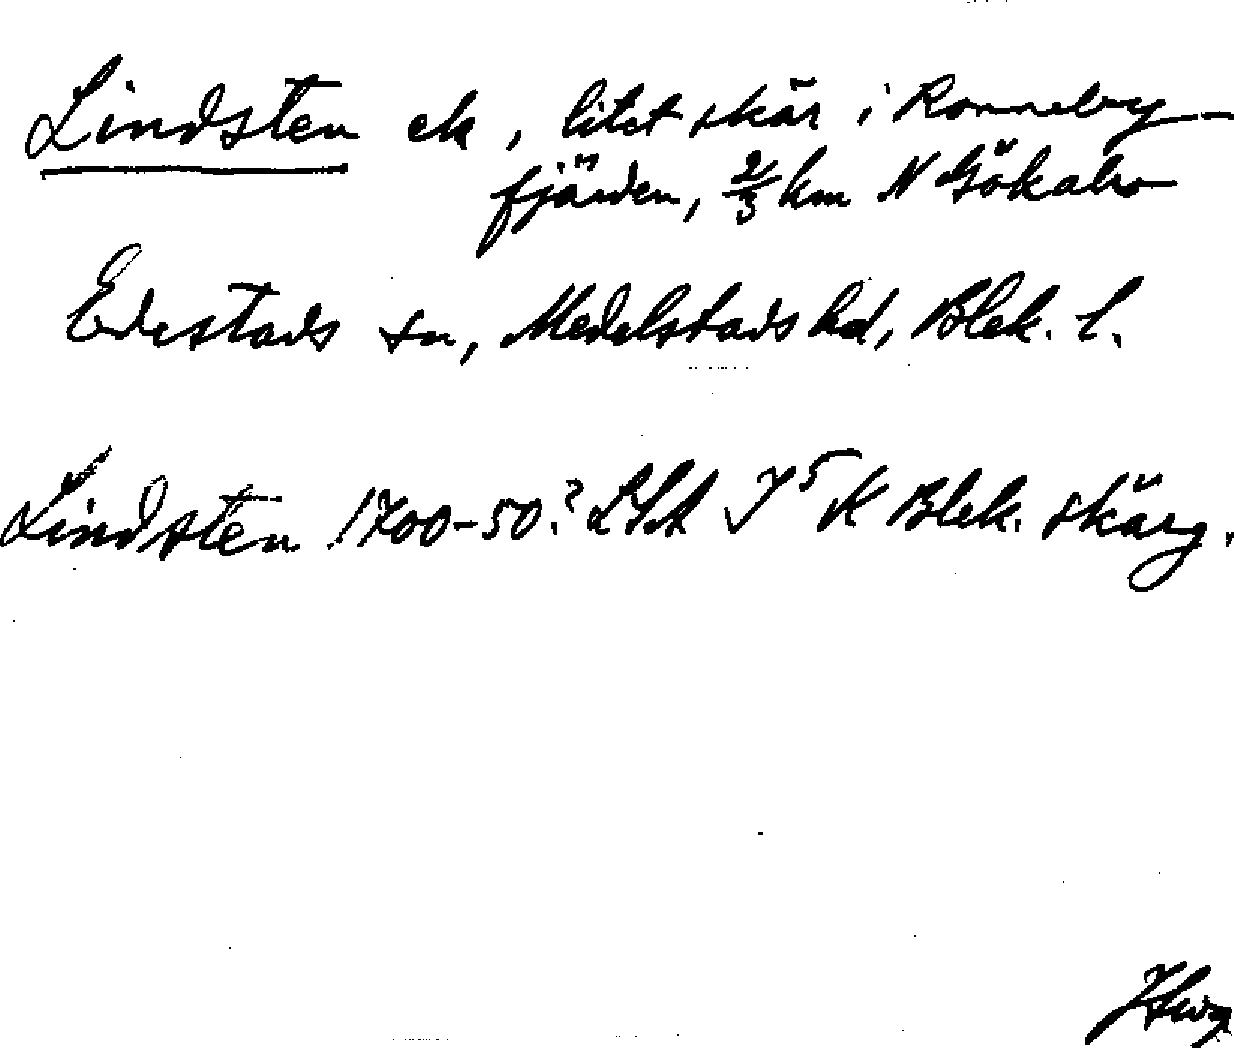 Lindsten ek, litet skär i Ronneby-
fjärden, 2/3 km N Gökalv
Edestads sn, Medelstads hd, Blek. l.
Lindsten 1700-50? LSA J 5 K Blek. skärg.